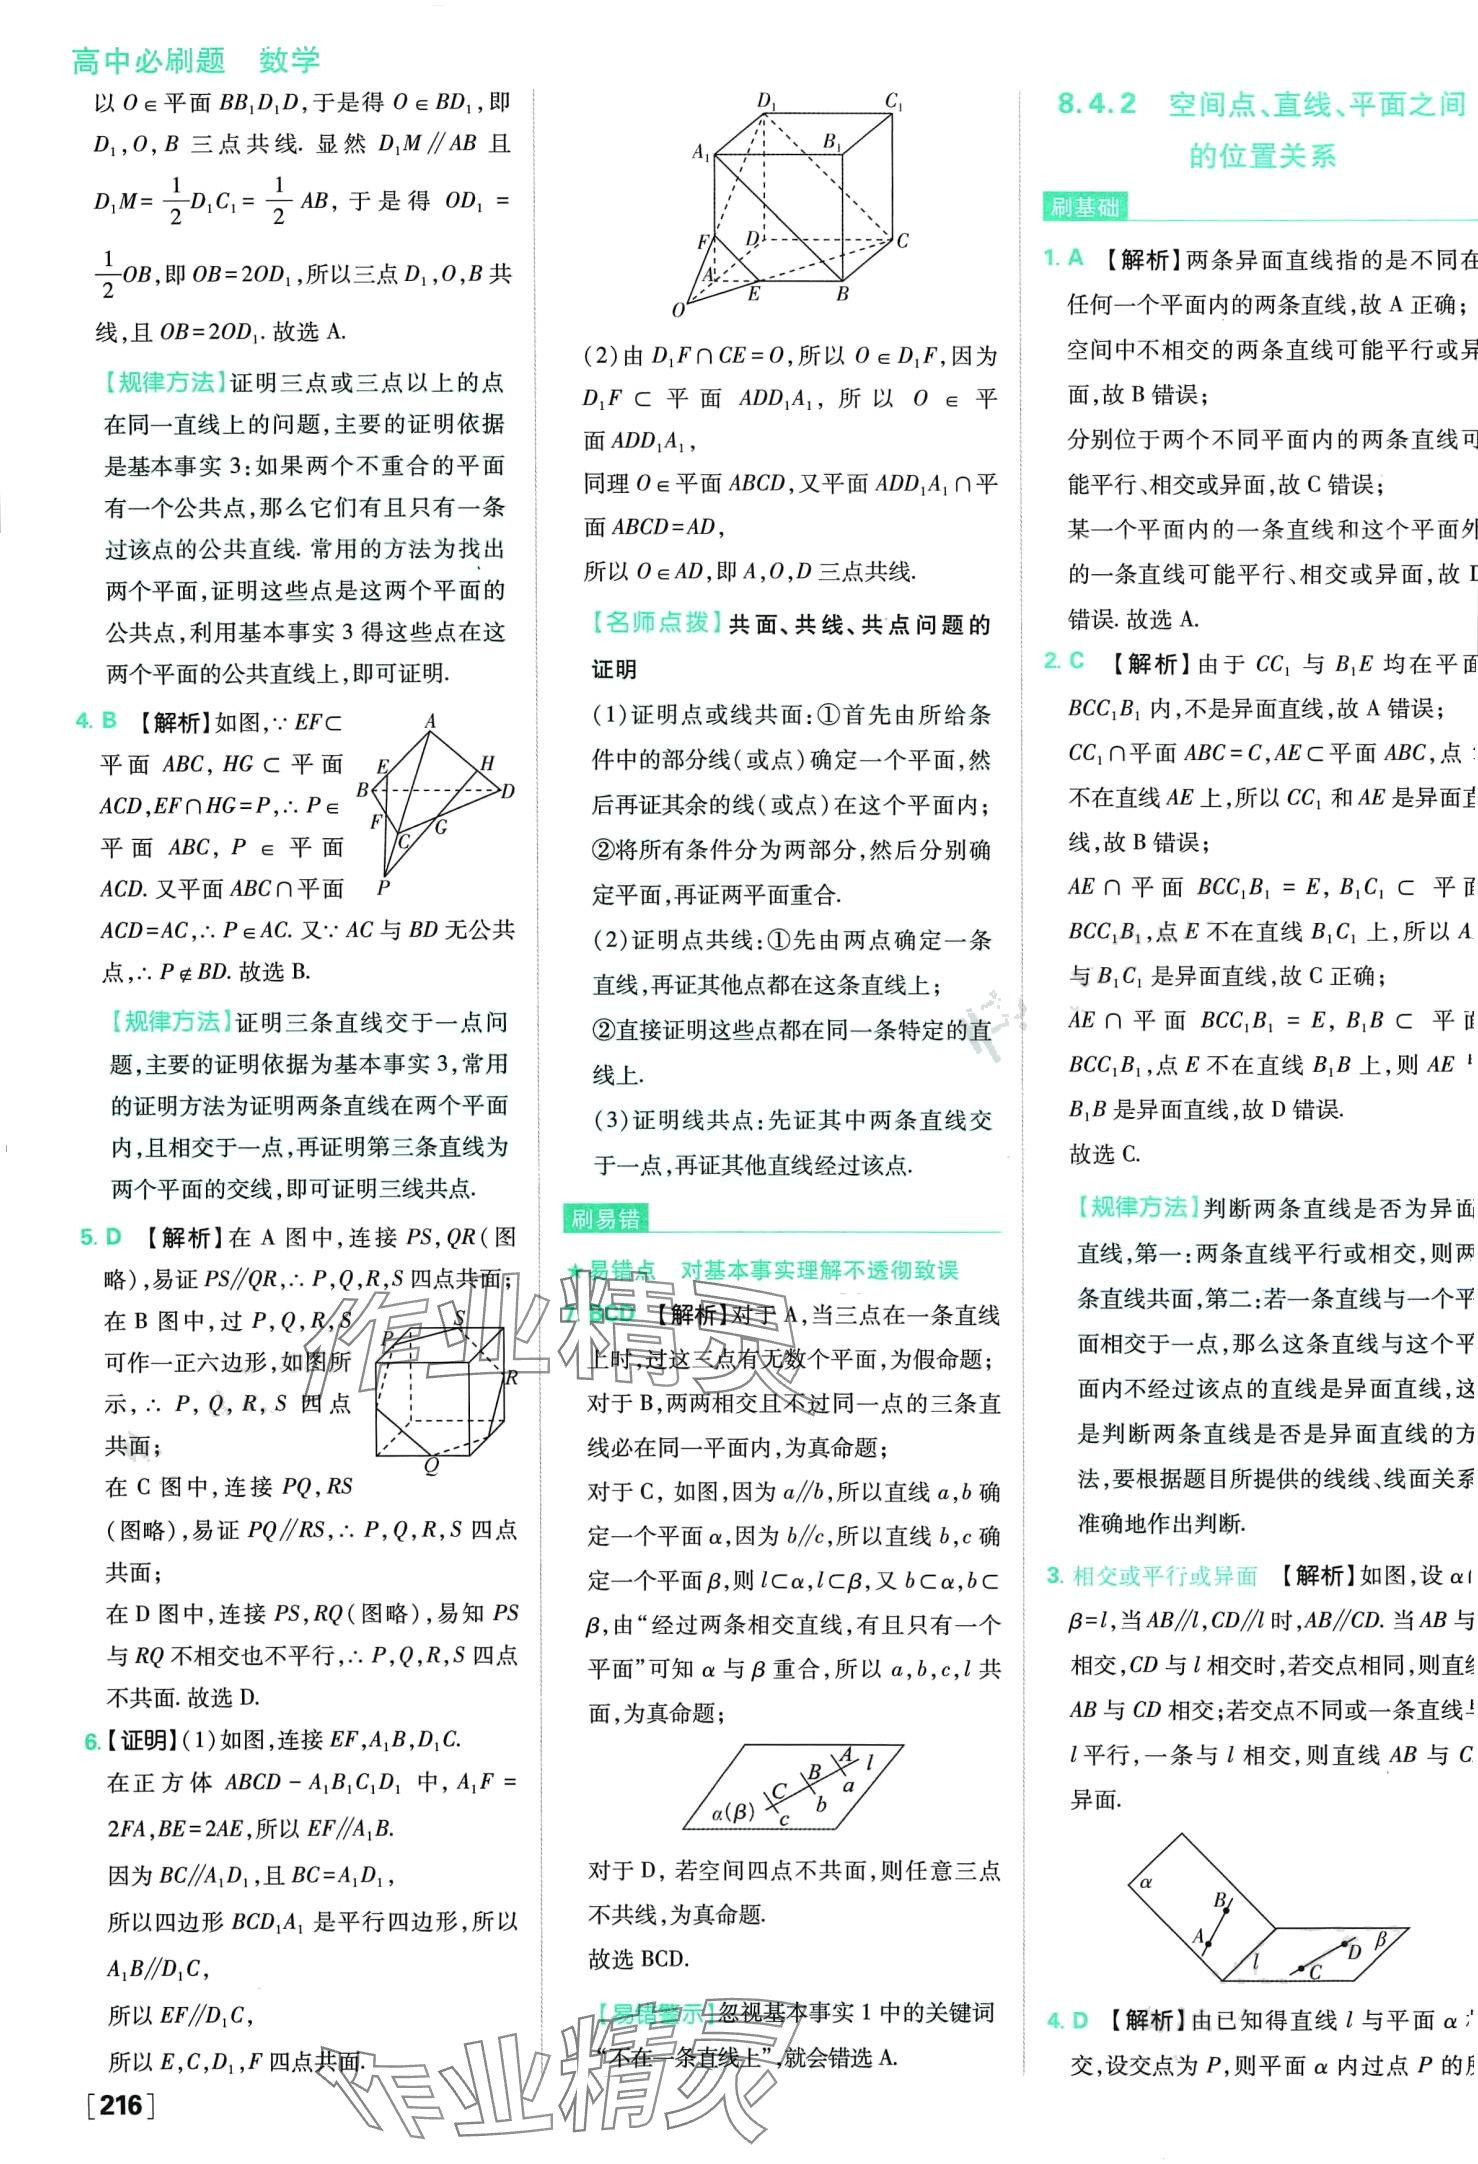 高中必刷题 数学
以 O∈平面 BB₁D₁D,于是得 O∈BD₁,即
D₁,O,B 三点共线. 显然 D₁M∥AB 且
D₁M=1/2D₁C₁=1/2 AB,于是得 OD₁=
1/2OB,即 OB=2OD₁,所以三点 D₁,O,B 共
线,且 OB=2OD₁. 故选 A.
【规律方法】证明三点或三点以上的点
在同一直线上的问题,主要的证明依据
是基本事实 3:如果两个不重合的平面
有一个公共点,那么它们有且只有一条
过该点的公共直线. 常用的方法为找出
两个平面,证明这些点是这两个平面的
公共点,利用基本事实 3 得这些点在这
两个平面的公共直线上,即可证明.
4. B 【解析】如图,∵ EF⊂
平面 ABC,HG⊂平面
ACD,EF∩HG=P,∴ P∈
平面 ABC,P∈平面
ACD. 又平面 ABC∩平面
ACD=AC,∴ P∈AC. 又∵ AC 与 BD 无公共
点,∴ P∉BD. 故选 B.
A
E
H
B
D
F
G
C
P
【规律方法】证明三条直线交于一点问
题,主要的证明依据为基本事实 3,常用
的证明方法为证明两条直线在两个平面
内,且相交于一点,再证明第三条直线为
两个平面的交线,即可证明三线共点.
5. D 【解析】在 A 图中,连接 PS,QR(图
略),易证 PS∥QR,∴ P,Q,R,S 四点共面;
在 B 图中,过 P,Q,R,S
可作一正六边形,如图所
示,∴ P,Q,R,S 四点
共面;
在 C 图中,连接 PQ,RS
(图略),易证 PQ∥RS,∴ P,Q,R,S 四点
共面;
在 D 图中,连接 PS,RQ(图略),易知 PS
与 RQ 不相交也不平行,∴ P,Q,R,S 四点
不共面. 故选 D.
S
P
R
Q
6.【证明】(1)如图,连接 EF,A₁B,D₁C.
在正方体 ABCD-A₁B₁C₁D₁ 中,A₁F=
2FA,BE=2AE,所以 EF∥A₁B.
因为 BC∥A₁D₁,且 BC=A₁D₁,
所以四边形 BCD₁A₁ 是平行四边形,所以
A₁B∥D₁C,
所以 EF∥D₁C,
所以 E,C,D₁,F 四点共面.
[216]
D₁
C₁
A₁
B₁
F
D
C
A
E
B
O
(2)由 D₁F∩CE=O,所以 O∈D₁F,因为
D₁F⊂平面 ADD₁A₁,所以 O∈平
面 ADD₁A₁,
同理 O∈平面 ABCD,又平面 ADD₁A₁∩平
面 ABCD=AD,
所以 O∈AD,即 A,O,D 三点共线.
【名师点拨】共面、共线、共点问题的
证明
(1)证明点或线共面:①首先由所给条
件中的部分线(或点)确定一个平面,然
后再证其余的线(或点)在这个平面内;
②将所有条件分为两部分,然后分别确
定平面,再证两平面重合.
(2)证明点共线:①先由两点确定一条
直线,再证其他点都在这条直线上;
②直接证明这些点都在同一条特定的直
线上.
(3)证明线共点:先证其中两条直线交
于一点,再证其他直线经过该点.
刷易错
★易错点 对基本事实理解不透彻致误
7. BCD 【解析】对于 A,当三点在一条直线
上时,过这三点有无数个平面,为假命题;
对于 B,两两相交且不过同一点的三条直
线必在同一平面内,为真命题;
对于 C,如图,因为 a∥b,所以直线 a,b 确
定一个平面 α,因为 b∥c,所以直线 b,c 确
定一个平面 β,则 l⊂α,l⊂β,又 b⊂α,b⊂
β,由“经过两条相交直线,有且只有一个
平面”可知 α 与 β 重合,所以 a,b,c,l 共
面,为真命题;
A
l
B
a
C
b
α(β)
c
对于 D,若空间四点不共面,则任意三点
不共线,为真命题.
故选 BCD.
【易错警示】忽视基本事实 1 中的关键词
“不在一条直线上”,就会错选 A.
8.4.2 空间点、直线、平面之间
的位置关系
刷基础
1. A 【解析】两条异面直线指的是不同在
任何一个平面内的两条直线,故 A 正确;
空间中不相交的两条直线可能平行或异
面,故 B 错误;
分别位于两个不同平面内的两条直线可
能平行、相交或异面,故 C 错误;
某一个平面内的一条直线和这个平面外
的一条直线可能平行、相交或异面,故 D
错误. 故选 A.
2. C 【解析】由于 CC₁ 与 B₁E 均在平面
BCC₁B₁ 内,不是异面直线,故 A 错误;
CC₁∩平面 ABC=C,AE⊂平面 ABC,点
不在直线 AE 上,所以 CC₁ 和 AE 是异面直
线,故 B 错误;
AE∩平面 BCC₁B₁=E,B₁C₁⊂平面
BCC₁B₁,点 E 不在直线 B₁C₁ 上,所以 A
与 B₁C₁ 是异面直线,故 C 正确;
AE∩平面 BCC₁B₁=E,B₁B⊂平面
BCC₁B₁,点 E 不在直线 B₁B 上,则 AE
B₁B 是异面直线,故 D 错误.
故选 C.
【规律方法】判断两条直线是否为异面
直线,第一:两条直线平行或相交,则两
条直线共面,第二:若一条直线与一个平
面相交于一点,那么这条直线与这个平
面内不经过该点的直线是异面直线,这
是判断两条直线是否是异面直线的方
法,要根据题目所提供的线线、线面关系
准确地作出判断.
3. 相交或平行或异面 【解析】如图,设 α∩
β=l,当 AB∥l,CD∥l 时,AB∥CD. 当 AB 与
相交,CD 与 l 相交时,若交点相同,则直线
AB 与 CD 相交;若交点不同或一条直线与
l 平行,一条与 l 相交,则直线 AB 与 C
异面.
α
B
A
l
D
C
β
4. D 【解析】由已知得直线 l 与平面 α
交,设交点为 P,则平面 α 内过点 P 的所
作业精灵
作业精灵